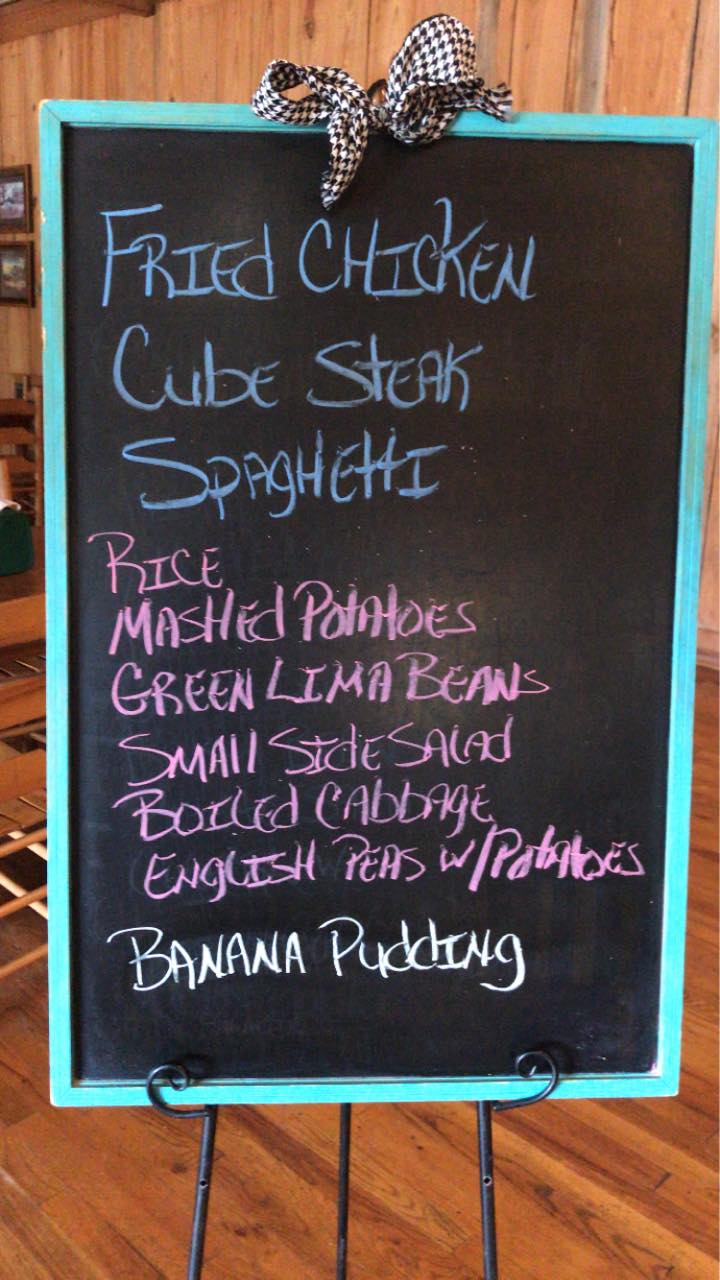 FRIEd CHICKEN
CubE STEAK
SPAGHEttI
RICE
MASHEd POtAtOES
GREEN LIMA BEANS
SMAll SIdE SALAd
BOILEd CAbbAGE
ENGLISH PEAS W/POtAtOES
BANANA PuddINg